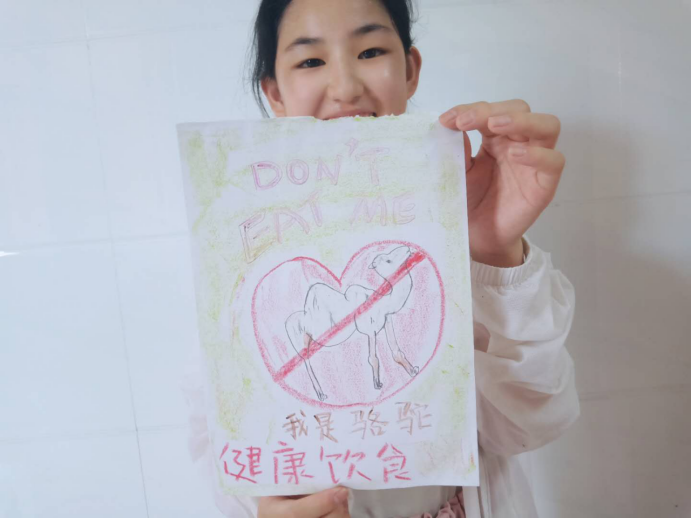 DON'T
EAT ME
我是骆驼
健康饮食